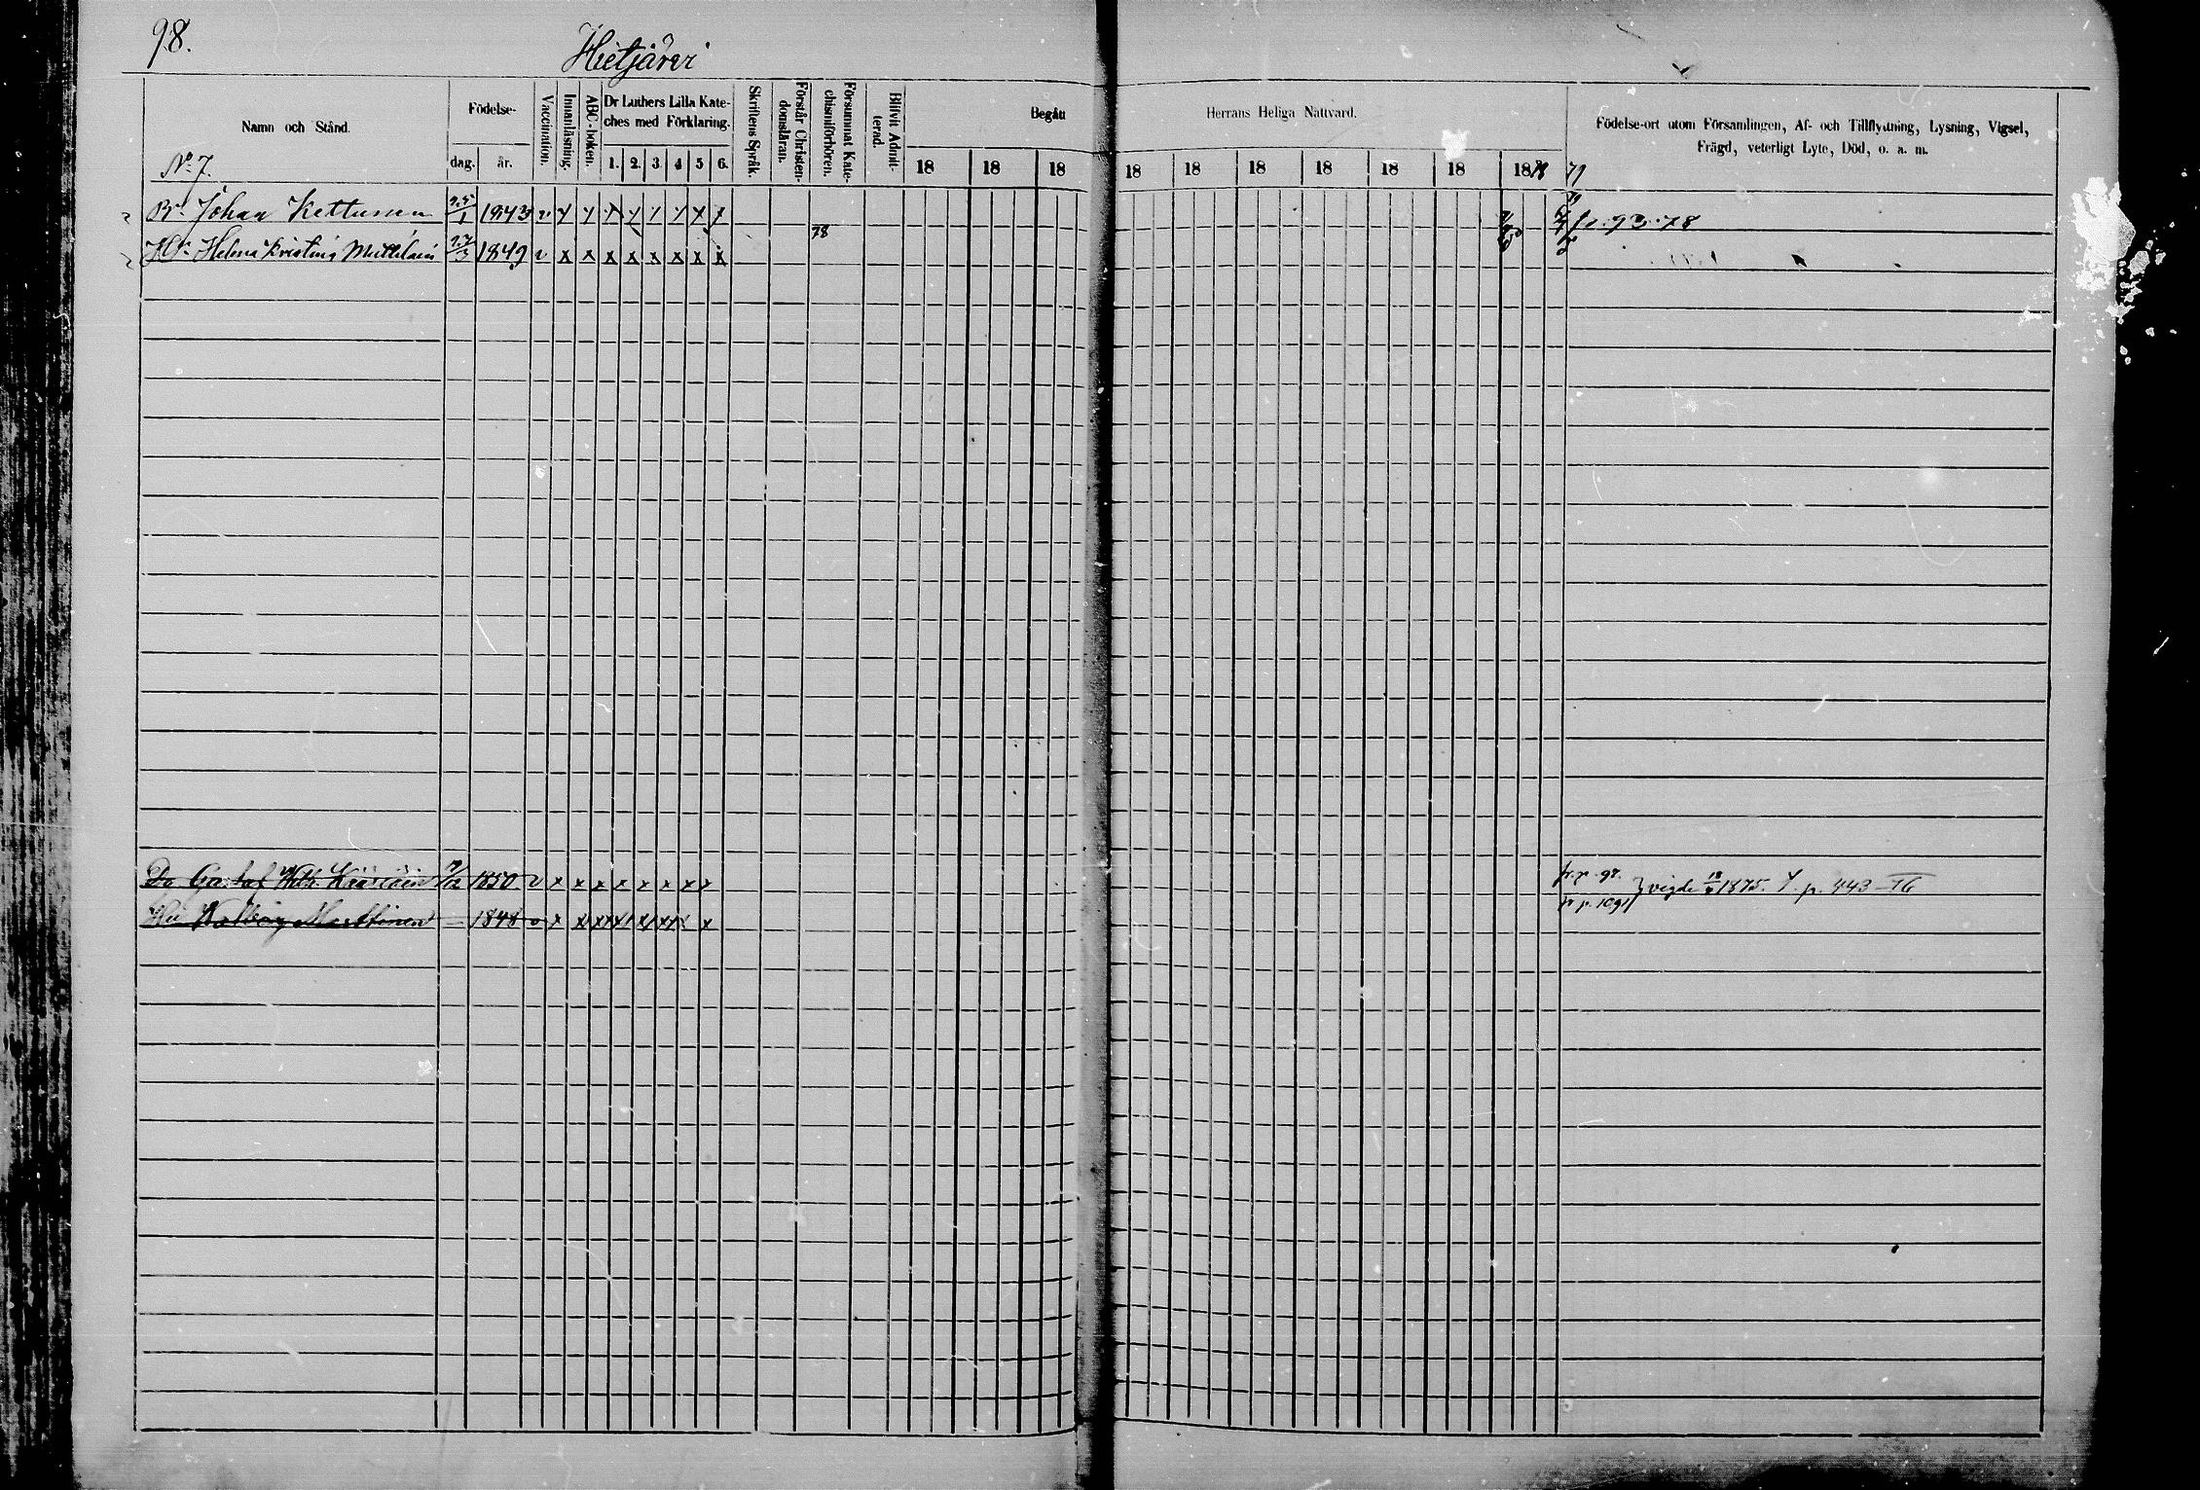 98.
Hietjärvi
Namn och Stånd.
Födelse-
dag.
år.
Vaccination.
Innanläsning.
ABC-boken.
Dr Luthers Lilla Kate-
ches med Förklaring.
1. 2. 3. 4 5 6.
Skriftens Språk.
Förstår Christen-
domsläran.
Försummat Kate-
chismiförhören.
Blifvit Admit-
terad.
Begått
18 18 18
Herrans Heliga Nattvard.
18 18 18 18 18 18 1878 79
Födelse-ort utom Församlingen, Af- och Tillflyttning, Lysning, Vigsel,
Frägd, veterligt Lyte, Död, o. a. m.
No 7.
Johan Kettunen 25/1 1843 v x x x x x x x x fr. 93. 78
78
Hu. Helena Kristina 27/3 1849 v x x x x x x x x
1850 v x x x x x x x x fr. p. 97. vigde 1875. p. 443 – 76
Hu Marttinen 1848 v x x x x x x x x fr p. 1091